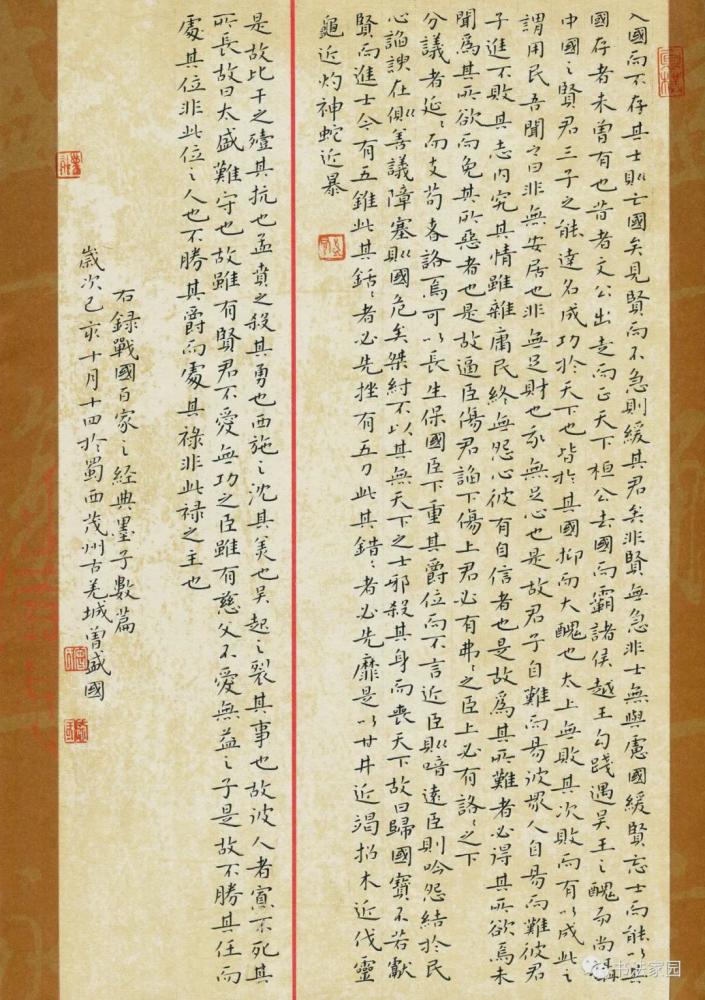 入國而不存其士則亡國矣見賢而不急則緩其君矣非賢無急非士無與慮國緩賢忘士而能以其
國存者未曾有也昔者文公出走而正天下桓公去國而霸諸侯越王勾踐遇吳王之醜而尚攝
中國之賢君三子之能達名成功於天下也皆於其國抑而大醜也太上無敗其次敗而有以成此之
謂用民吾聞之曰非無安居也非無足財也我無足心也是故君子自難而易彼眾人自易而難彼君
子進不敗其志內究其情雖雜庸民終無怨心彼有自信者也是故為其所難者必得其所欲焉未
聞為其所欲而免其所惡者也是故逼臣傷君諂下傷上君必有弗弗之臣上必有詻詻之下
分議者延延而支苟者詻焉可以長生保國臣下重其爵位而不言近臣則喑遠臣則吟怨結於民
心諂諛在側善議障塞則國危矣桀紂不以其無天下之士邪殺其身而喪天下故曰歸國寶不若獻
賢而進士今有五錐此其銛銛者必先挫有五刀此其錯錯者必先靡是以甘井近竭招木近伐靈
龜近灼神蛇近暴
是故比干之殪其抗也孟賁之殺其勇也西施之沈其美也吳起之裂其事也故彼人者寡不死其
所長故曰太盛難守也故雖有賢君不愛無功之臣雖有慈父不愛無益之子是故不勝其任而
處其位非此位之人也不勝其爵而處其祿非此祿之主也
右錄戰國百家之經典墨子數篇
歲次己亥十月十四於蜀西茂州古羌城曾盛國
书法家园